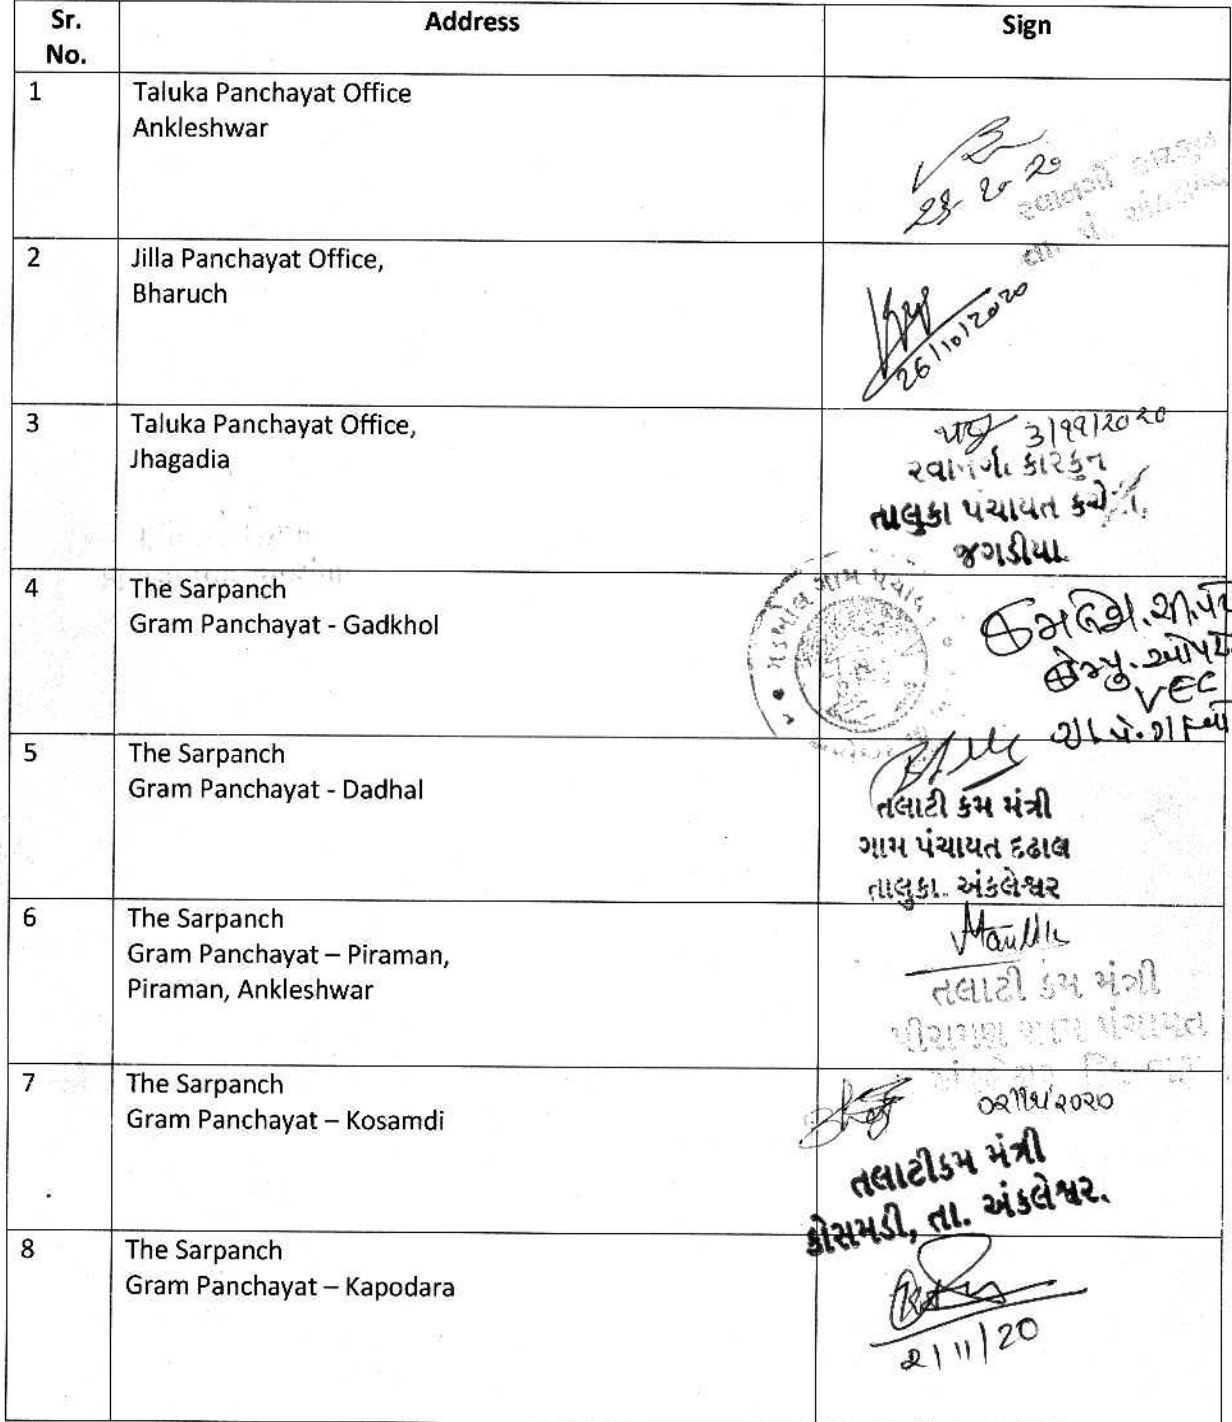 Sr. No.
Address
Sign
1
Taluka Panchayat Office
Ankleshwar
2
Jilla Panchayat Office,
Bharuch
26/10/2020
3
Taluka Panchayat Office,
Jhagadia
3/૧૧/2020
રવાનગી કારકુન
તાલુકા પંચાયત કચેરી,
જગડીયા
4
The Sarpanch
Gram Panchayat - Gadkhol
VEC
5
The Sarpanch
Gram Panchayat - Dadhal
તલાટી કમ મંત્રી
ગામ પંચાયત દઢાલ
તાલુકા. અંકલેશ્વર
6
The Sarpanch
Gram Panchayat – Piraman,
Piraman, Ankleshwar
તલાટી કમ મંત્રી
7
The Sarpanch
Gram Panchayat – Kosamdi
તલાટીકમ મંત્રી
કોસમડી, તા. અંકલેશ્વર.
8
The Sarpanch
Gram Panchayat – Kapodara
૨/11/20